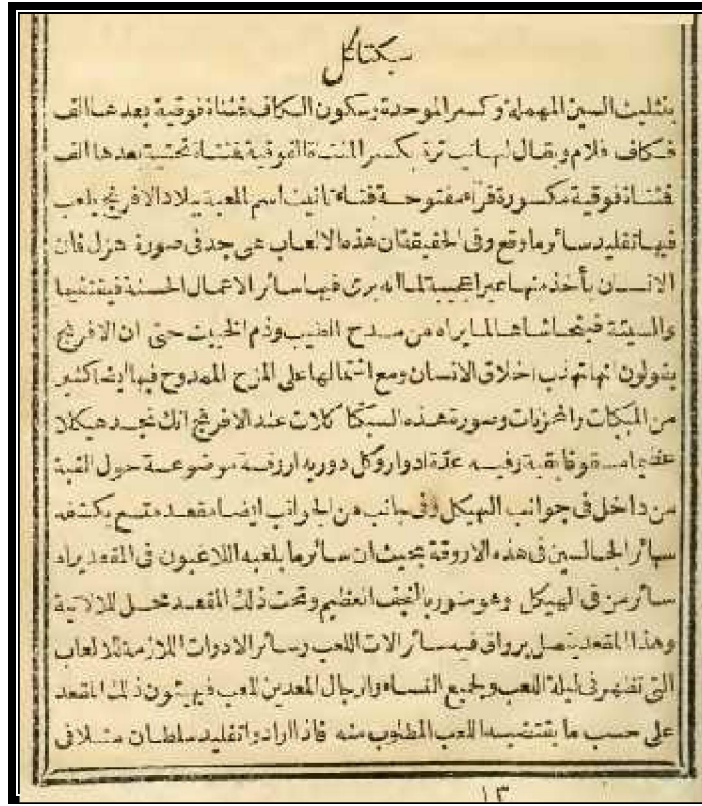 سبكتاكل
بتثليث السين المهملة وكسر الموحدة وسكون الكاف فمثناة فوقية بعدها الف
فكاف فلام ويقال لها تياترة بكسر المثناة الفوقية فمثناة تحتية بعدها الف
فمثناة فوقية مكسورة فراء مفتوحة فتاء تانيث اسم للعبة ببلاد الافرنج يلعب
فيها تقليد سائر ما وقع وفى الحقيقة ان هذه الالعاب هى جد فى صورة هزل فان
الانسان يأخذ منها عبرا عجيبة لما انه يرى فيها سائر الاعمال الحسنة فيقتفيها
والسيئة فيتحاشاها لما يراه من مدح الطيب وذم الخبيث حتى ان الافرنج
يقولون انها تهذب اخلاق الانسان ومع اشتمالها على المزح الممدوح فيها ايضا كثير
من المبكيات والمحزنات وصورة هذه السبكتا كلات عند الافرنج انك تجد هيكلا
عظيما مسقوفا بقبة وفيه عدة ادوار وكل دور به اروقة موضوعة حول القبة
من داخل فى جوانب الهيكل وفى جانب من الجوانب ايضا مقعد متسع يكشفه
سائر الجالسين فى هذه الاروقة بحيث ان سائر ما يلعبه اللاعبون فى المقعد يراه
سائر من فى الهيكل وهو منور بالنجف العظيم وتحت ذلك المقعد محل للالاتية
وهذا المقعد يتصل برواق فيه سائر الات اللعب وسائر الادوات اللازمة للالعاب
التى تظهر فى ليلة اللعب ولجميع النساء والرجال المعدين للعب فيهيئون ذلك المقعد
على حسب ما يقتضيه اللعب المطلوب منه فاذا ارادوا تقليد سلطان مثلا فى
١٣